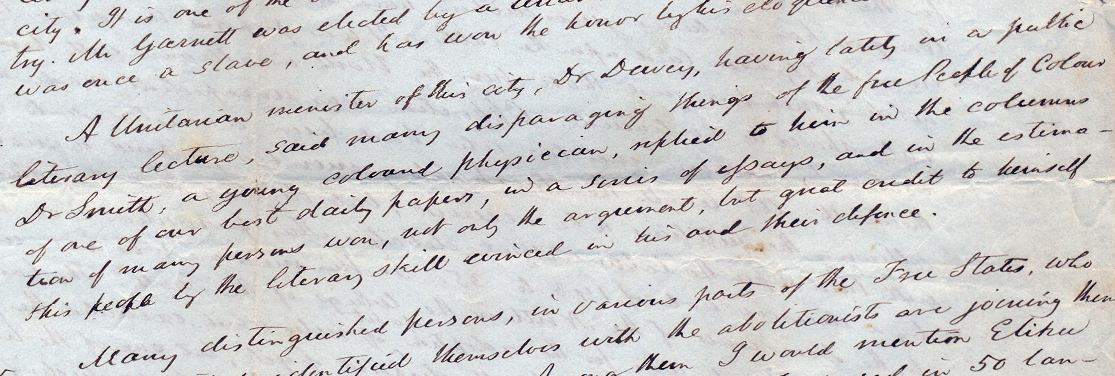 city. It is one of the
try. Mr Garnett was elected by a
was once a slave, and has won the honor by his eloquence
A Unitarian minister of this city, Dr Dewey, having lately in a public
literary lecture, said many disparaging things of the free People of Colour
Dr Smith, a young coloured physician, replied to him in the columns
of one of our best daily papers, in a series of essays, and in the estima-
tion of many persons won, not only the argument, but great credit to himself
this people by the literary skill evinced in his and their defence.
Many distinguished persons, in various parts of the Free States, who
identified themselves with the abolitionists are joining them
them I would mention Elihu
in 50 lan-